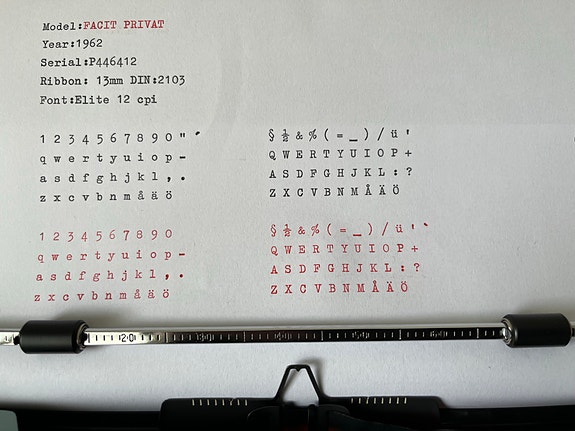 Model:FACIT PRIVAT
Year:1962
Serial:P446412
Ribbon: 13mm DIN:2103
Font:Elite 12 cpi
1 2 3 4 5 6 7 8 9 0 " ´
q w e r t y u i o p -
a s d f g h j k l , .
z x c v b n m å ä ö
§ ½ & % ( = _ ) / ü '
Q W E R T Y U I O P +
A S D F G H J K L : ?
Z X C V B N M Å Ä Ö
1 2 3 4 5 6 7 8 9 0
q w e r t y u i o p -
a s d f g h j k l , .
z x c v b n m å ä ö
§ ½ & % ( = _ ) / ü ' `
Q W E R T Y U I O P +
A S D F G H J K L : ?
Z X C V B N M Å Ä Ö